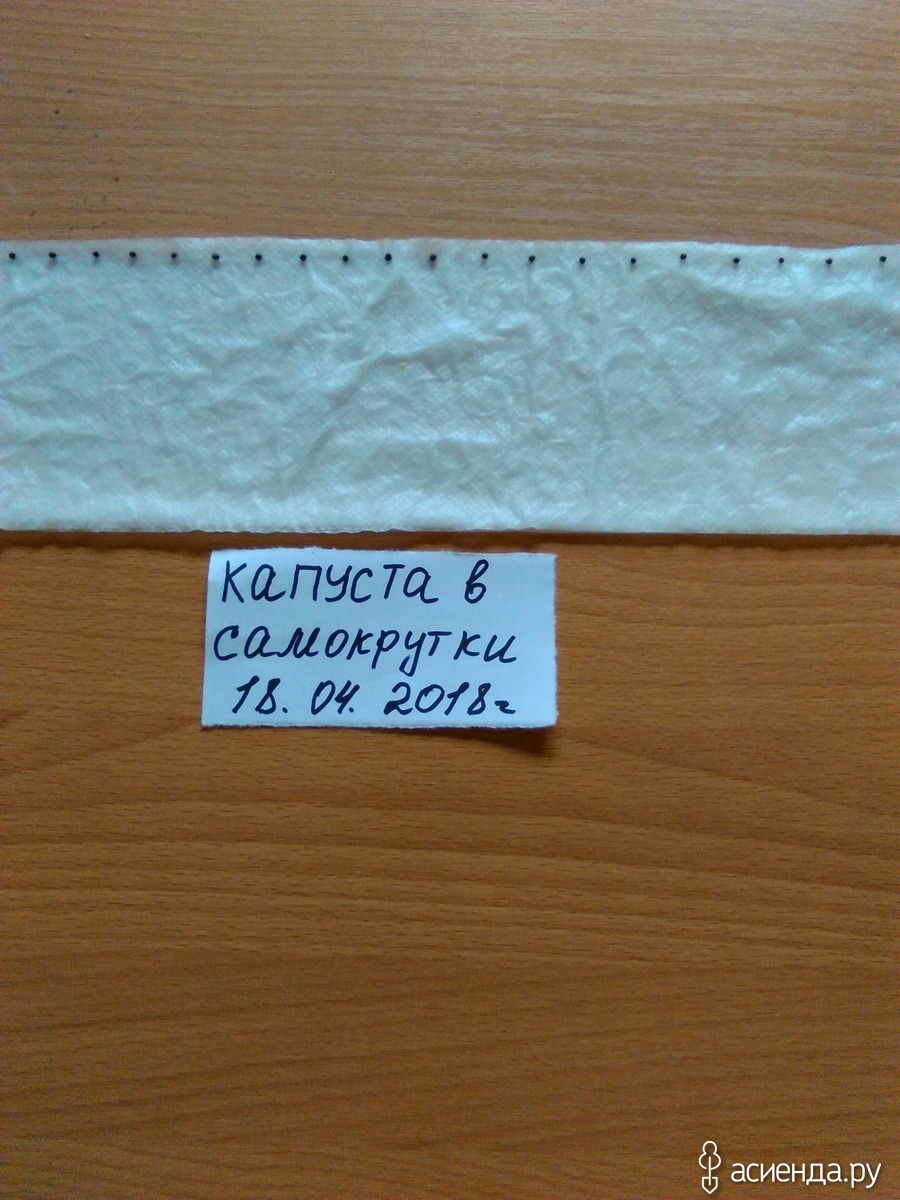 капуста в
самокрутки
18. 04. 2018г
асиенда.ру